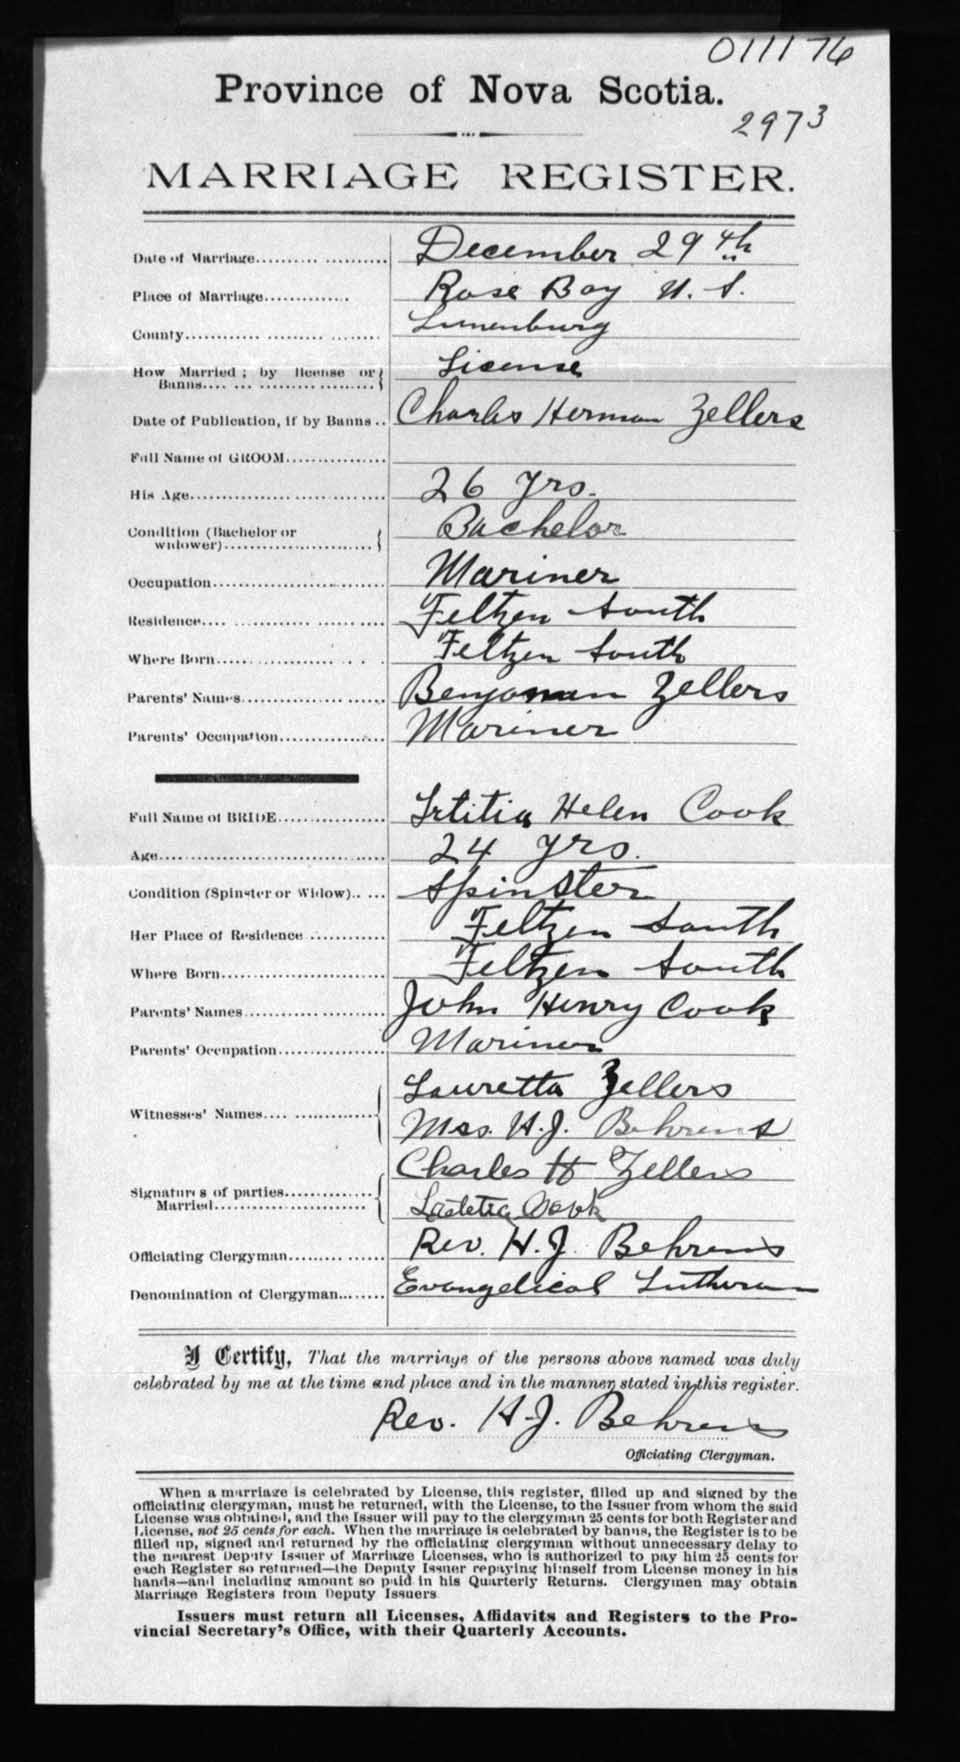 011176
Province of Nova Scotia.
2973
MARRIAGE REGISTER.
Date of Marriage.......... ........... December 29th
Place of Marriage............. Rose Bay N. S.
County........... ......... ........ Lunenburg
How Married ; by license or
Banns.... ... ......... ......... License
Date of Publication, if by Banns .. Charles Herman Zellers
Full Name of GROOM...............
His Age............................... 26 yrs.
Condition (Bachelor or
widower)....................... Bachelor
Occupation........................... Mariner
Residence.... ........... ...... .... Feltzen South
Where Born................ .. . . Feltzen South
Parents' Names...................... Benjamin Zellers
Parents' Occupation................ Mariner
Full Name of BRIDE................ Letitia Helen Cook
Age.................................... 24 yrs.
Condition (Spinster or Widow).. ... Spinster
Her Place of Residence ............ Feltzen South
Where Born......................... Feltzen South
Parents' Names..................... John Henry Cook
Parents' Occupation................ Mariner
Lauretta Zellers
Witnesses' Names.... .............
Mrs. H. J. Behrens
Charles H Zellers
Signatures of parties..............
Married........................ Cook
Officiating Clergyman......... ..... Rev. H. J. Behrens
Denomination of Clergyman........ Evangelical Lutheran
I Certify, That the marriage of the persons above named was duly
celebrated by me at the time and place and in the manner stated in this register.
Rev. H. J. Behrens
Officiating Clergyman.
When a marriage is celebrated by License, this register, filled up and signed by the
officiating clergyman, must be returned, with the License, to the Issuer from whom the said
License was obtained, and the Issuer will pay to the clergyman 25 cents for both Register and
License, not 25 cents for each. When the marriage is celebrated by banns, the Register is to be
filled up, signed and returned by the officiating clergyman without unnecessary delay to
the nearest Deputy Issuer of Marriage Licenses, who is authorized to pay him 25 cents for
each Register so returned—the Deputy Issuer repaying himself from License money in his
hands—and including amount so paid in his Quarterly Returns. Clergymen may obtain
Marriage Registers from Deputy Issuers
Issuers must return all Licenses, Affidavits and Registers to the Pro-
vincial Secretary's Office, with their Quarterly Accounts.